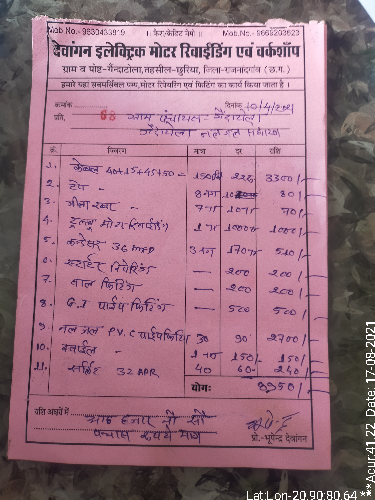 Mob.No.-9630433819 || कैश/क्रेडिट मेमो || Mob.No.-9669203623
देवांगन इलेक्ट्रिक मोटर रिवाईंडिंग एवं वर्कशॉप
ग्राम व पोष्ट-गैंदाटोला, तहसील-छुरिया, जिला-राजनांदगांव (छ.ग.)
हमारे यहां सबमर्सिबल पम्प, मोटर रिपेयरिंग एवं फिटिंग का कार्य किया जाता है ।
क्रमांक 68 दिनांक 10/4/2021
प्रति, ग्राम पंचायत-गैंदाटोला
गैंदाटोला नलजल
क्र. विवरण मात्रा दर राशि
1. केबल 40+15+45+50 3300/-
2. टेप 8 नग 80/-
3. 7 10 70/-
4. 1 1000 1000/-
5. 36 mfd 3 नग 170 510/-
6. स्टार्टर रिपेरिंग — 200 200/-
7. वाल फिटिंग — 200 200/-
8. G.I पाईप फिटिंग — 500 500/-
9. नल जल P.V.C पाईप फिटिंग 30 90 2700/-
10. 1 150/- 150/-
11. 32 40 60 240/-
योग: 8950/-
राशि अक्षरों में आठ हजार नौ सौ
पचास रूपये मात्र
प्रो.-भूपेन्द्र देवांगन
Lat:Lon-20.90:80.64
***Acur:41.22, Date: 17-08-2021